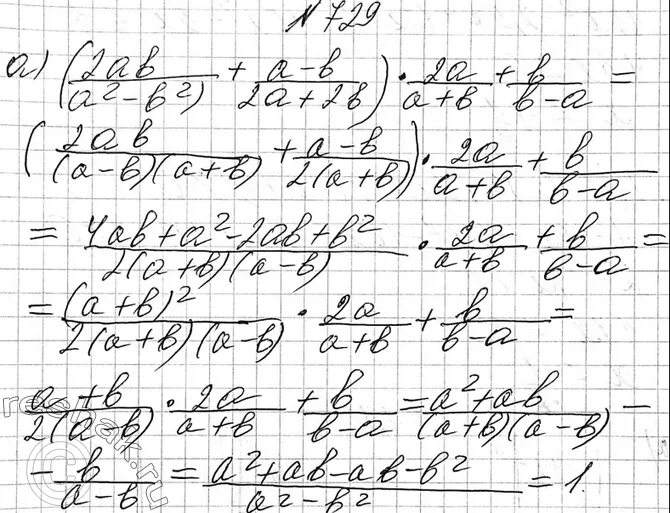 № 729
а) (2ab/(a²-b²) + (a-b)/(2a+2b)) · 2a/(a+b) + b/(b-a) =
(2ab/((a-b)(a+b)) + (a-b)/(2(a+b))) · 2a/(a+b) + b/(b-a)
= (4ab+a²-2ab+b²)/(2(a+b)(a-b)) · 2a/(a+b) + b/(b-a) =
= (a+b)²/(2(a+b)(a-b)) · 2a/(a+b) + b/(b-a) =
(a+b)/(2(a-b)) · 2a/(a+b) + b/(b-a) = (a²+ab)/((a+b)(a-b)) -
- b/(a-b) = (a²+ab-ab-b²)/(a²-b²) = 1.
reshak.ru